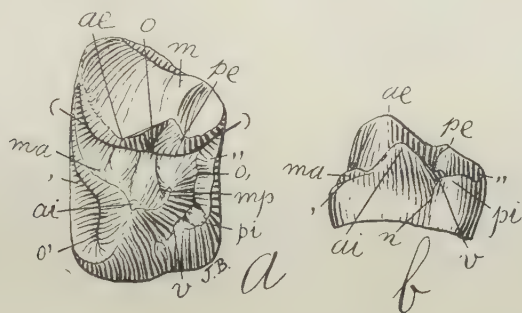 ae o m pe
( )
ma " o,
' mp
ai pi
o' v J.B. a
ae pe
ma "
' pi
ai n v
b